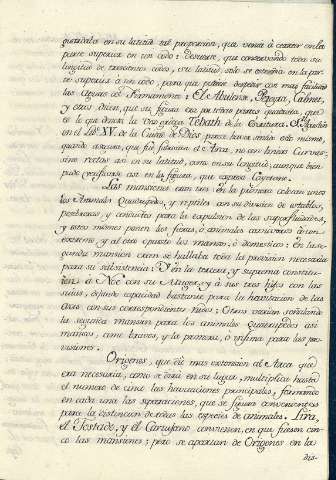 guardaba en su latitud tal proporcion, que venia á cerrar en la
parte superior en un codo: demanera, que conservando toda su
longitud de trescientos codos, su latitud solo se estendia en la par-
te superior à un codo, para que pudiese despedir con mas facilidad
las aguas del Firmamento: El Abulense, Peryra, Valmet,
y otros dicen, que su figura era por todas partes quadrada, que
es lo que denota la voz griega Tebath de la Escritura. Sn. Agustin
en el Lib. XV. de la Ciudad de Dios parece haver sentido esto mismo,
quando asegura, que fué fabricada el Arca, no con lineas curvas
sino rectas asi en su latitud, como en su longitud; aunque bien
pude verificarse asi en la figura, que expresa Cayetano.
Las mansiones eran tres: En la primera colocan unos
los Animales Quadrupedos, y reptiles con su division de establos,
pesebreras, y conductos para la expulsion de las superfluidades,
y estos mismos ponen las fieras, ó animales carnivoros á un
extremo, y al otro opuesto los mansos, ó domesticos: en la se-
gunda mansion creen se hallaba toda la provision necesaria
para su subsistencia: Y en la tercera, y suprema constitui-
an à Noé con su Muger, y á sus tres hijos con las
suias, dejando capacidad bastante para la havitacion de las
Aves con sus correspondientes nidos: Otros erraron señalando
la segunda mansion para los animales Quadrupedos asi
mansos, como bravos, y la primera, ó infima para las pro-
visiones.
Origenes, que dió mas extension al Arca que
era necesaria, como se dirá en su lugar, multiplica hasta
el numero de cinco las havitaciones principales, formando
en cada una las separaciones, que se figura convenientes
para la distincion de todas las especies de animales. Lira,
el Tostado, y el Cartujano convienen, en que fuesen cin-
co las mansiones; pero se apartan de Origenes en la
dis-